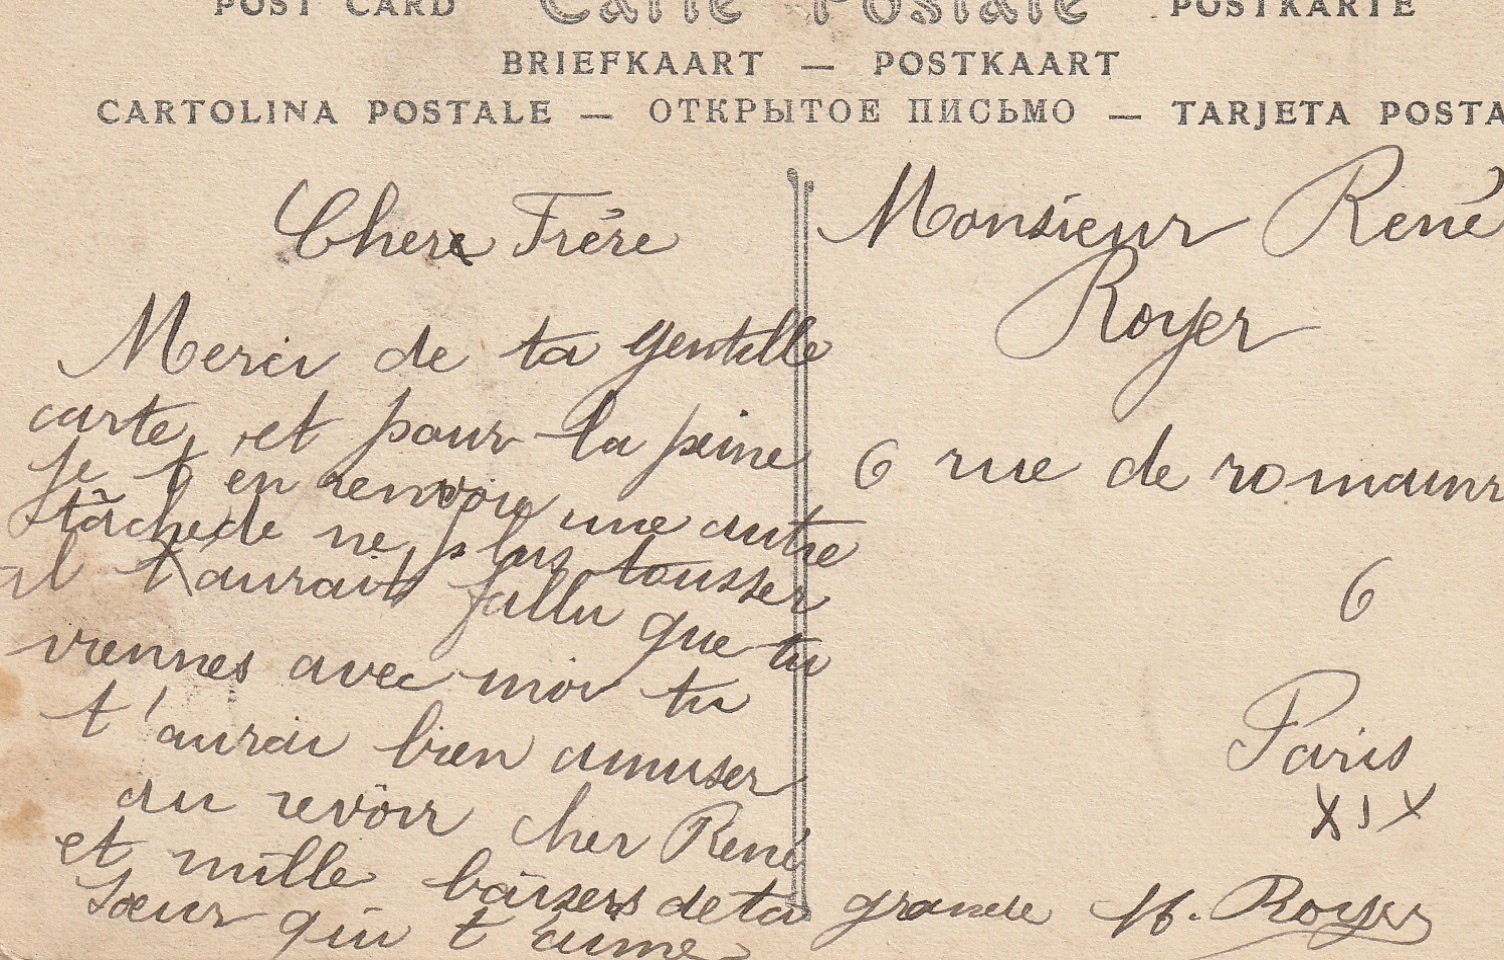 POST CARD Carte Postale POSTKARTE
BRIEFKAART — POSTKAART
CARTOLINA POSTALE — ОТКРЫТОЕ ПИСЬМО — TARJETA POSTA
Chere Frére
Merci de ta gentille
carte, et pour la peine
je t en renvoie une autre
tâchede ne plus tousser
il t'aurait fallu que tu
viennes avec moi tu
t'aurai bien amuser
au revoir cher René
et mille baisers de ta grande
Sœur qui t'aime
Royer
Monsieur René
Royer
6 rue de romains
6
Paris
XIX